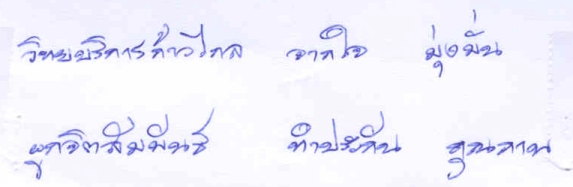 วิทยบริการก้าวไกล จากใจ มุ่งมั่น
ผูกจิตสัมพันธ์ ทำประกัน คุณภาพ